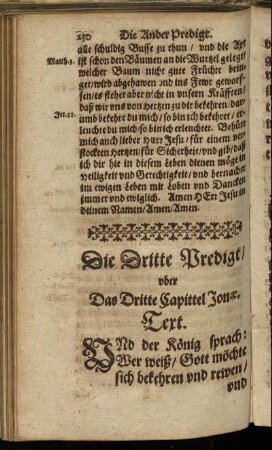 150 Die Ander Predigt.
alle schuldig Busse zu thun / vnd die Axt
Matth.3. ist schon den Bäumen an die Wurtzel geleget /
welcher Baum nicht gute Früchte brin-
get / wird abgehawen vnd ins Fewr geworf-
fen / es stehet aber nicht in vnsern Kräfften /
daß wir vns von Hertzen zu dir bekehren / dar-
Jer.31. umb bekehre du mich / so bin ich bekehret / er-
leuchte du mich / so bin ich erleuchtet. Behüte
mich auch lieber HErr Jesu / für einem ver-
stockten Hertzen / für Sicherheit / vnd gib / daß
ich dir hie in diesem Leben dienen möge in
Heiligkeit vnd Gerechtigkeit / vnd hernacher
im ewigen Leben mit Loben vnd Dancken
immer vnd ewiglich. Amen HErr Jesu in
deinem Namen / Amen / Amen.
Die Dritte Predigt /
vber
Das Dritte Capittel Jonæ.
Text.
VNd der König sprach:
Wer weiß / Gott möchte
sich bekehren vnd rewen /
vnd